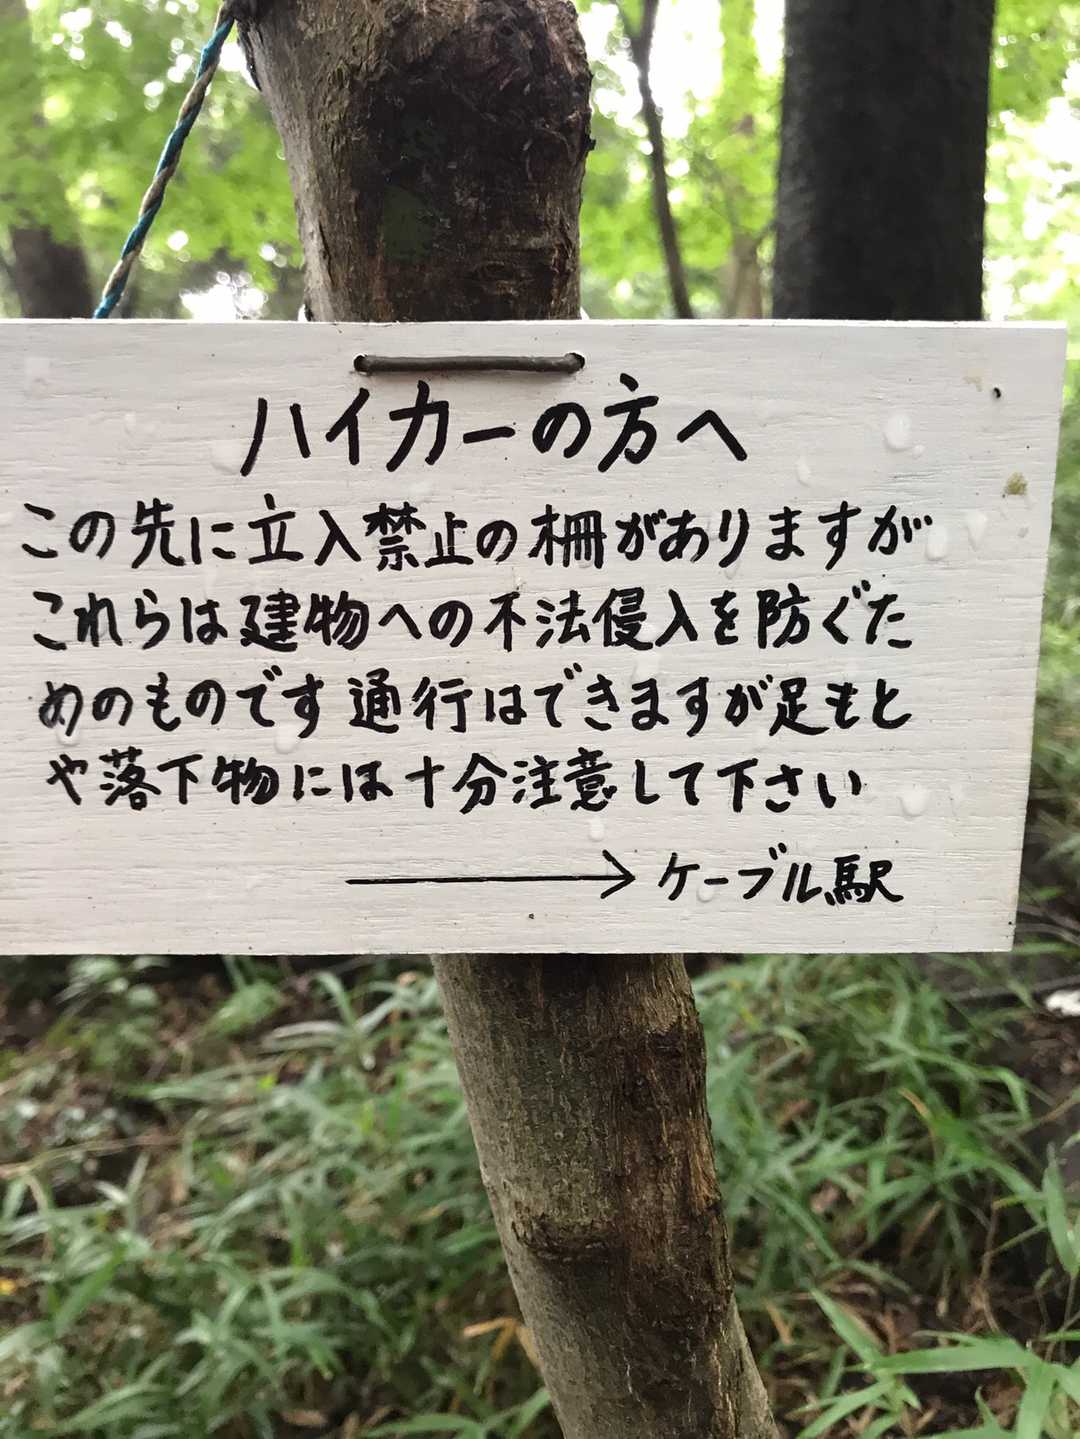 ハイカーの方へ
この先に立入禁止の柵がありますが
これらは建物への不法侵入を防ぐた
めのものです 通行はできますが足もと
や落下物には十分注意して下さい
→ ケーブル駅